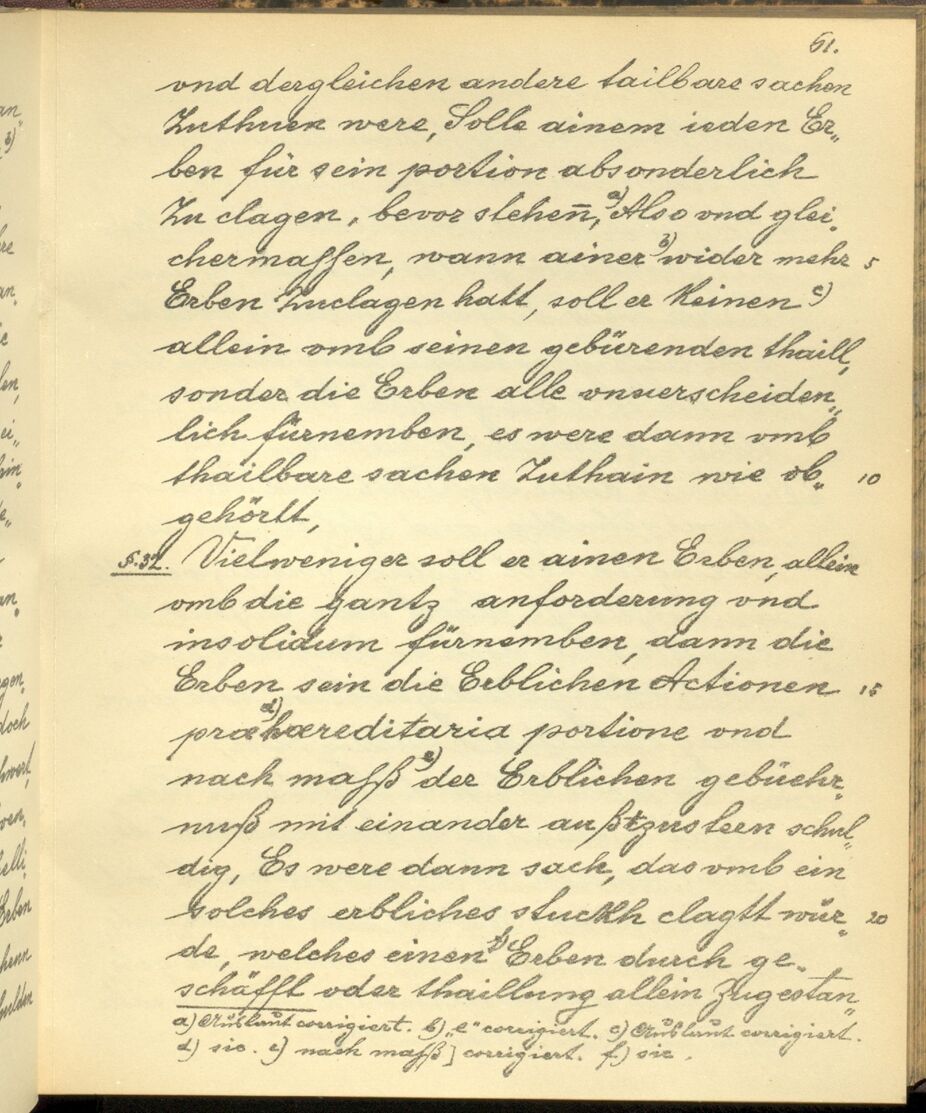 61.
vnd dergleichen andere tailbare sachen
Zuthuen were, Solle ainem ieden Er„
ben für sein portion absonderlich
Zu clagen, bevor stehen̄, a) Also vnd glei„
chermassen, wann ainer b) wider mehr 5
Erben Zuclagen hatt, soll er Keinen c)
allein vmb seinen gebürenden thaill,
sonder die Erben alle vnuerscheiden„
lich fürnemben, es were dann vmb
thailbare sachen Zuthain wie ob„ 10
gehörtt,
§.32. Vielweniger soll er ainen Erben, allein
vmb die gantz anforderung vnd
insolidum fürnemben, dann die
Erben sein die Erblichen Actionen 15
præ d) hæreditaria portione vnd
nach maſß e) der Erblichen gebüehr„
nuß mit einander außzusteen schul„
dig, Es were dann sach, das vmb ein
solches erbliches stuckh clagtt wür„ 20
de, welches einen f) Erben durch ge„
schäfft oder thaillung allein Zugestan„
a) Auslaut corrigiert. b) „e“ corrigiert. c) Auslaut corrigiert.
d) sic. e) nach maſß] corrigiert. f) sic.